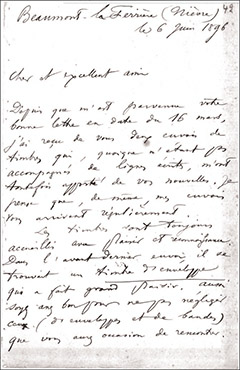 42
Beaumont-la-Ferrière (Nièvre)
le 6 Juin 1896
Cher et excellent ami
Depuis que m'est parvenue votre
bonne lettre en date du 16 mars,
j'ai reçu de vous deux envois de
timbres qui, quoique n'étant pas
accompagnés de lignes écrites, m'ont
toutefois apporté de vos nouvelles. Je
pense que, de même, mes envois
vous arrivent régulièrement.
Les timbres sont toujours
accueillis avec plaisir et
Dans l'avant dernier envoi il se
trouvait un timbre d'enveloppe
qui a fait grand plaisir. aussi
soyez assez bon pour ne pas négliger
ceux (d'enveloppes et de bandes)
que vous aurez occasion de rencontrer.